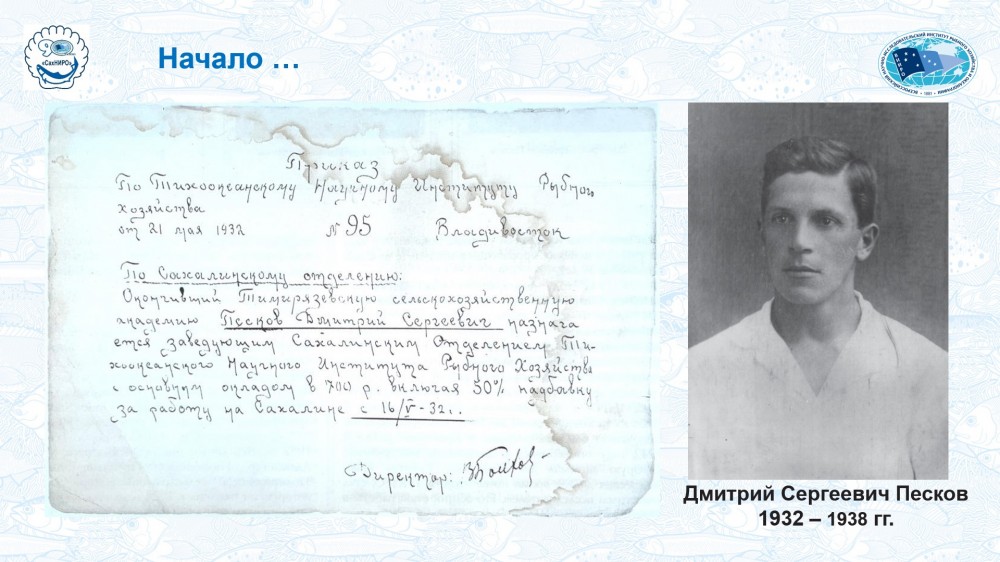 Начало …
«СахНИРО»
Приказ
По Тихоокеанскому Научному Институту Рыбного
хозяйства
от 21 мая 1932 № 95 Владивосток
По Сахалинскому отделению:
Окончивший Тимирязевскую сельскохозяйственную
академию Песков Дмитрий Сергеевич назнача
ется заведующим Сахалинским Отделением Ти-
хоокеанского Научного Института Рыбного Хозяйства
с основным окладом в 700 р. включая 50% надбавку
за работу на Сахалине с 16/V-32г.
Директор:
Дмитрий Сергеевич Песков
1932 – 1938 гг.